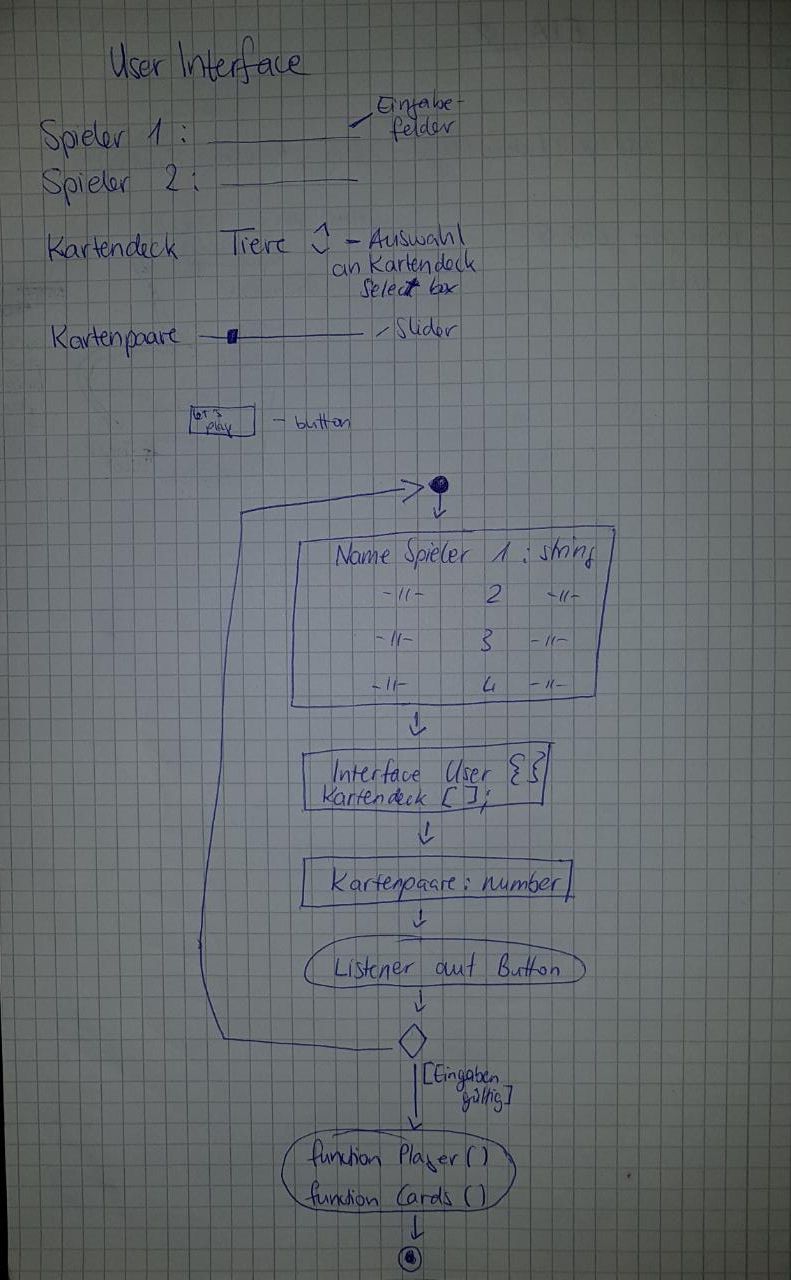 User Interface
Spieler 1 : Eingabe-
felder
Spieler 2 :
Kartendeck Tiere - Auswahl
an Kartendeck
Select box
Kartenpaare - Slider
let's
play - button
Name Spieler 1 : string
-//- 2 -//-
-//- 3 -//-
-//- 4 -//-
Interface User {}
Kartendeck [ ];
Kartenpaare : number
Listener auf Button
[Eingaben
gültig]
function Player ()
function Cards ()